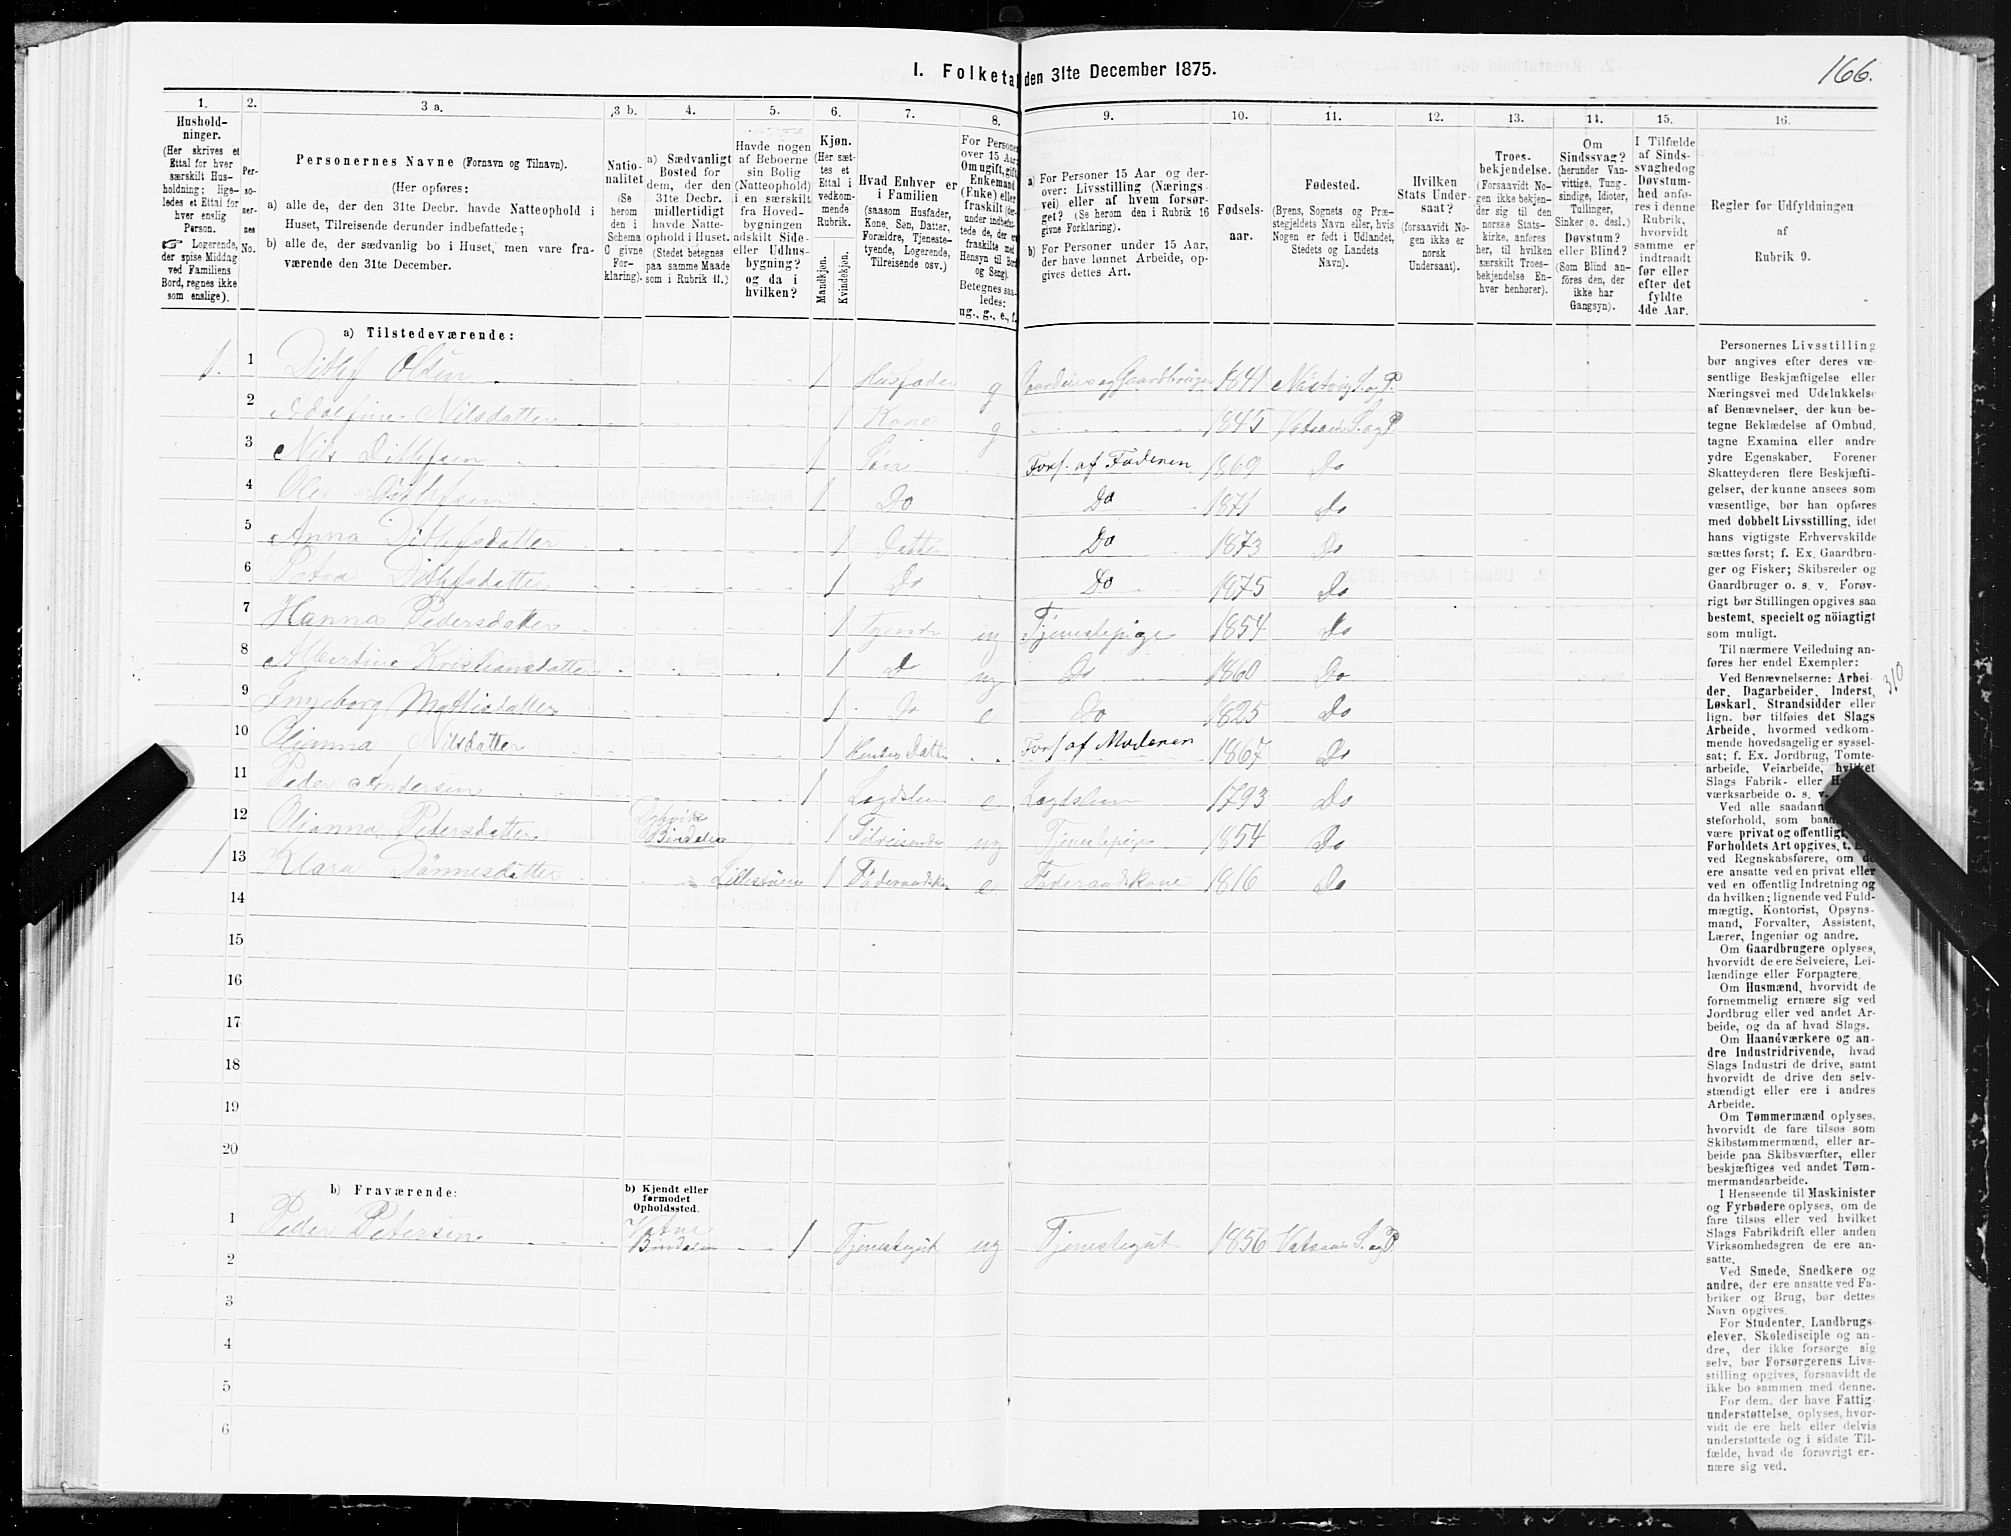 166.
I. Folketal den 31te December 1875.
1. 2. 3 a. 3 b. 4. 5. 6. 7. 8. 9. 10. 11. 12. 13. 14. 15. 16.
Husholdninger.
(Her skrives et Ettal for hver særskilt Husholdning; ligeledes et Ettal for hver enslig Person.
☞ Logerende, der spise Middag ved Familiens Bord, regnes ikke som enslige).
Personernes No.
Personernes Navne (Fornavn og Tilnavn).
(Her opføres:
a) alle de, der den 31te Decbr. havde Natteophold i Huset, Tilreisende derunder indbefattede;
b) alle de, der sædvanlig bo i Huset, men vare fraværende den 31te December.
Nationalitet (Se herom den i Schema C givne Forklaring).
a) Sædvanligt Bosted for dem, der den 31te Decbr. midlertidigt havde Natteophold i Huset. (Stedet betegnes paa samme Maade som i Rubrik 11.)
Havde nogen af Beboerne sin Bolig (Natteophold) i en særskilt fra Hovedbygningen adskilt Side- eller Udhusbygning? og da i hvilken?
Kjøn. (Her sættes et Ettal i vedkommende Rubrik.
Mandkjøn. Kvindekjøn.
Hvad Enhver er i Familien (saasom Husfader, Kone, Søn, Datter, Forældre, Tjenestetyende, Logerende, Tilreisende osv.)
For Personer over 15 Aar: Om ugift, gift, Enkemand (Enke) eller fraskilt
Betegnes saaledes: ug., g., e., f.
a) For Personer 15 Aar og derover: Livsstilling (Næringsvei) eller af hvem forsørget? (Se herom den i Rubrik 16 givne Forklaring).
b) For Personer under 15 Aar, der have lønnet Arbeide, opgives dettes Art.
Fødselsaar.
Fødested.
(Byens, Sognets og Præstegjeldets Navn, eller, hvis Nogen er født i Udlandet, Stedets og Landets Navn).
Hvilken Stats Undersaat? (forsaavidt Nogen ikke er norsk Undersaat).
Troesbekjendelse. (Forsaavidt Nogen ikke bekjender sig til den norske Statskirke, anføres her, til hvilken særskilt Troesbekjendelse Enhver henhører).
Om Sindssvag? (herunder Vanvittige, Tungsindige, Idioter, Tullinger, Sinker o. desl.) Døvstum? eller Blind? (Som Blind anføres den, der ikke har Gangsyn).
I Tilfælde af Sindssvaghed og Døvstumhed anføres i denne Rubrik, hvorvidt samme er indtraadt før eller efter det fyldte 4de Aar.
Regler for Udfyldningen af Rubrik 9.
a) Tilstedeværende:
1. 1 Ditlef Olsen 1 Husfader g Gaardeier og Gaardbruger 1841 S. og P.
2 Nilsdatter 1 Kone g 1845 S. og P.
3 Nils Ditlefsen 1 Søn Fors. af Faderen 1869 Do
4 Ole Ditlefsen 1 Do Do 1871 Do
5 Anna Ditlefsdatter 1 Datter Do 1873 Do
6 Petra Ditlefsdatter 1 Do Do 1875 Do
7 Hanna Pedersdatter 1 Tyende ug Tjenestepige 1854 Do
8 Albertine Kristiansdatter 1 Do ug Do 1860 Do
9 Ingeborg Mattisdatter 1 Do e Do 1825 Do
10 Olianna Nilsdatter 1 Hendes Datter Fors. af Moderen 1867 Do
11 Peder Andersen 1 Lægdslem e Lægdslem 1793 Do
12 Olianna Pedersdatter Bindalen 1 Tilreisende ug Tjenestepige 1854 Do
1 13 Klara Dønnesdatter Lillestuen 1 Føderaadskone e Føderaadskone 1816 Do
14
15
16
17
18
19
20
b) Fraværende:
b) Kjendt eller formodet Opholdssted.
1 Peder Petersen Bindalen 1 Tjenestegut ug Tjenestegut 1856 S. og P.
2
3
4
5
6
310
Personernes Livsstilling bør angives efter deres væsentlige Beskjæftigelse eller Næringsvei med Udelukkelse af Benævnelser, der kun betegne Beklædelse af Ombud, tagne Examina eller andre ydre Egenskaber. Forener Skatteyderen flere Beskjæftigelser, der kunne ansees som væsentlige, bør han opføres med dobbelt Livsstilling, idet hans vigtigste Erhvervskilde sættes først; f. Ex. Gaardbruger og Fisker; Skibsreder og Gaardbruger o. s. v. Forøvrigt bør Stillingen opgives saa bestemt, specielt og nöiagtigt som muligt.
Til nærmere Veiledning anføres her endel Exempler:
Ved Benævnelserne: Arbeider, Dagarbeider, Inderst, Løskarl, Strandsidder eller lign. bør tilføies det Slags Arbeide, hvormed vedkommende hovedsagelig er sysselsat; f. Ex. Jordbrug, Tomtearbeide, Veiarbeide, hvilket Slags Fabrik- eller Haandværksarbeide o. s. v.
Ved alle saadanne steforhold, som baade være privat og offentligt, Forholdets Art opgives, t. Ex. ved Regnskabsførere, om de ere ansatte ved en privat eller ved en offentlig Indretning og da hvilken; lignende ved Fuldmægtig, Kontorist, Opsynsmand, Forvalter, Assistent, Lærer, Ingeniør og andre.
Om Gaardbrugere oplyses, hvorvidt de ere Selveiere, Leilændinge eller Forpagtere.
Om Husmænd, hvorvidt de fornemmelig ernære sig ved Jordbrug eller ved andet Arbeide, og da af hvad Slags.
Om Haandværkere og andre Industridrivende, hvad Slags Industri de drive, samt hvorvidt de drive den selvstændigt eller ere i andres Arbeide.
Om Tømmermænd oplyses, hvorvidt de fare tilsøs som Skibstømmermænd, eller arbeide paa Skibsværfter, eller beskjæftiges ved andet Tømmermandsarbeide.
I Henseende til Maskinister og Fyrbødere oplyses, om de fare tilsøs eller ved hvilket Slags Fabrikdrift eller anden Virksomhedsgren de ere ansatte.
Ved Smede, Snedkere og andre, der ere ansatte ved Fabriker og Brug, bør dettes Navn opgives.
For Studenter, Landbrugselever, Skoledisciple og andre, der ikke forsørge sig selv, bør Forsørgerens Livsstilling opgives, forsaavidt de ikke bo sammen med denne.
For dem, der have Fattigunderstøttelse, oplyses, hvorvidt de ere helt eller delvis understøttede og i sidste Tilfælde, hvad de forøvrigt ernære sig ved.